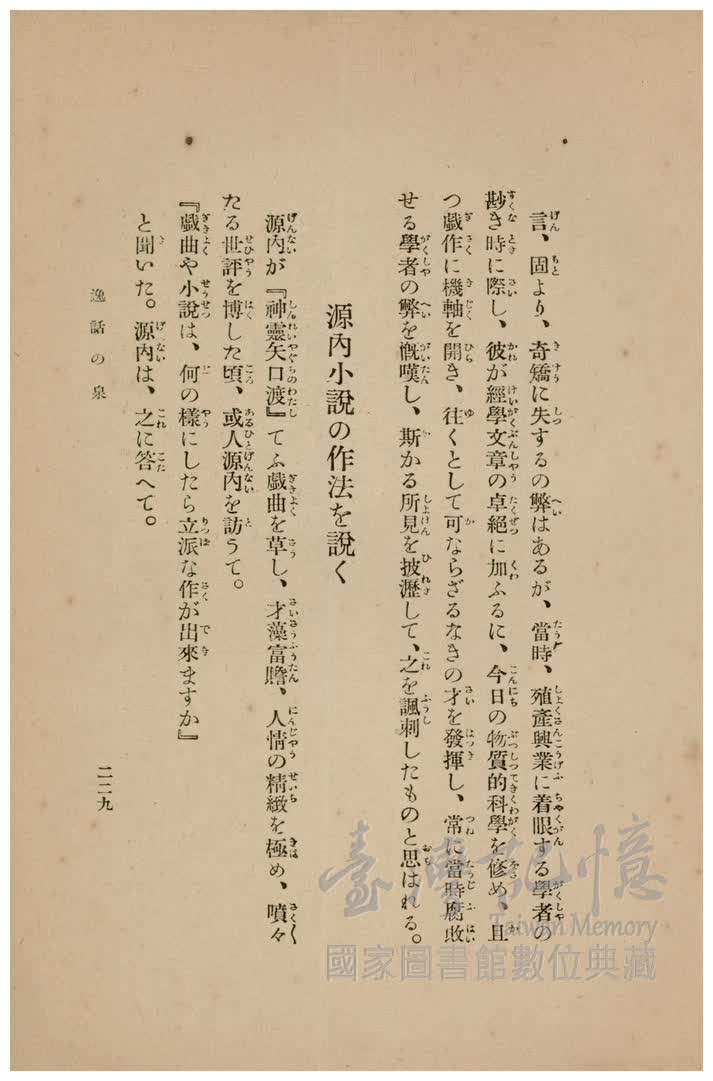 言、固より、奇矯に失するの弊はあるが、當時、殖產興業に着眼する學者の
尠き時に際し、彼が經學文章の卓絕に加ふるに、今日の物質的科學を修め、且
つ戯作に機軸を開き、往くとして可ならざるなきの才を發揮し、常に當時腐敗
せる學者の弊を慨嘆し、斯かる所見を披瀝して、之を諷刺したものと思はれる。
源內小說の作法を說く
源內が『神靈矢口渡』てふ戯曲を草し、才藻富贍、人情の精緻を極め、嘖々
たる世評を博した頃、或人源內を訪うて。
『戯曲や小說は、何の樣にしたら立派な作が出來ますか』
と聞いた。源內は、之に答へて。
逸話の泉
二二九
臺灣記憶
Taiwan Memory
國家圖書館數位典藏